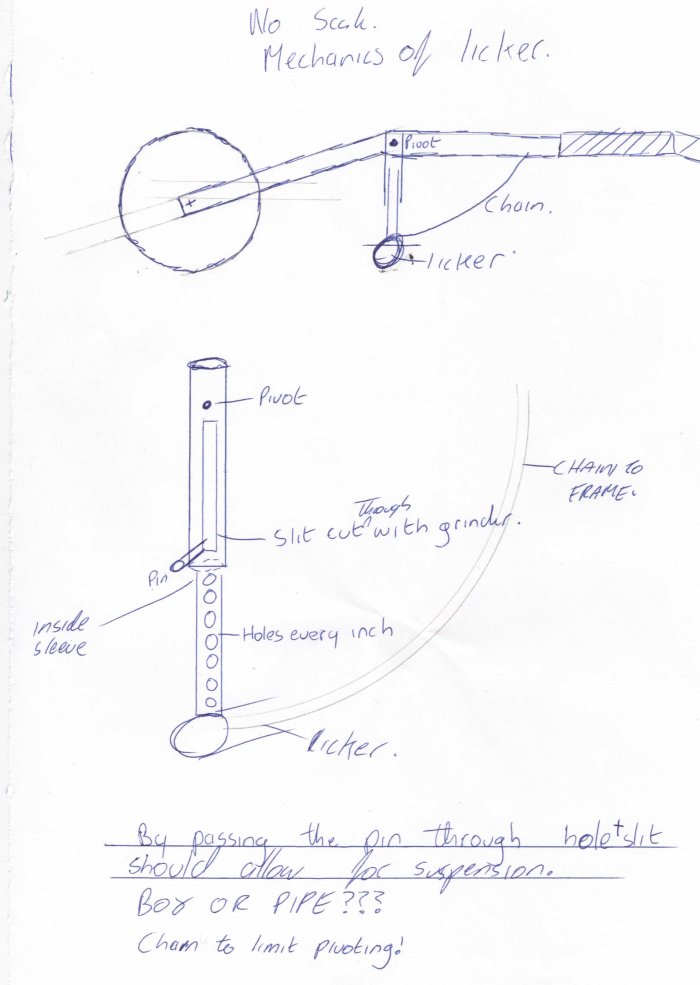 No Scale.
Mechanics of licker.
Pivot
Chain.
licker
Pivot
CHAIN TO
FRAME.
Through
Slit cut ^ with grinder.
Pin
inside
sleeve
Holes every inch
Licker.
By passing the pin through hole + slit
should allow for suspension.
BOX OR PIPE???
Chain to limit pivoting!